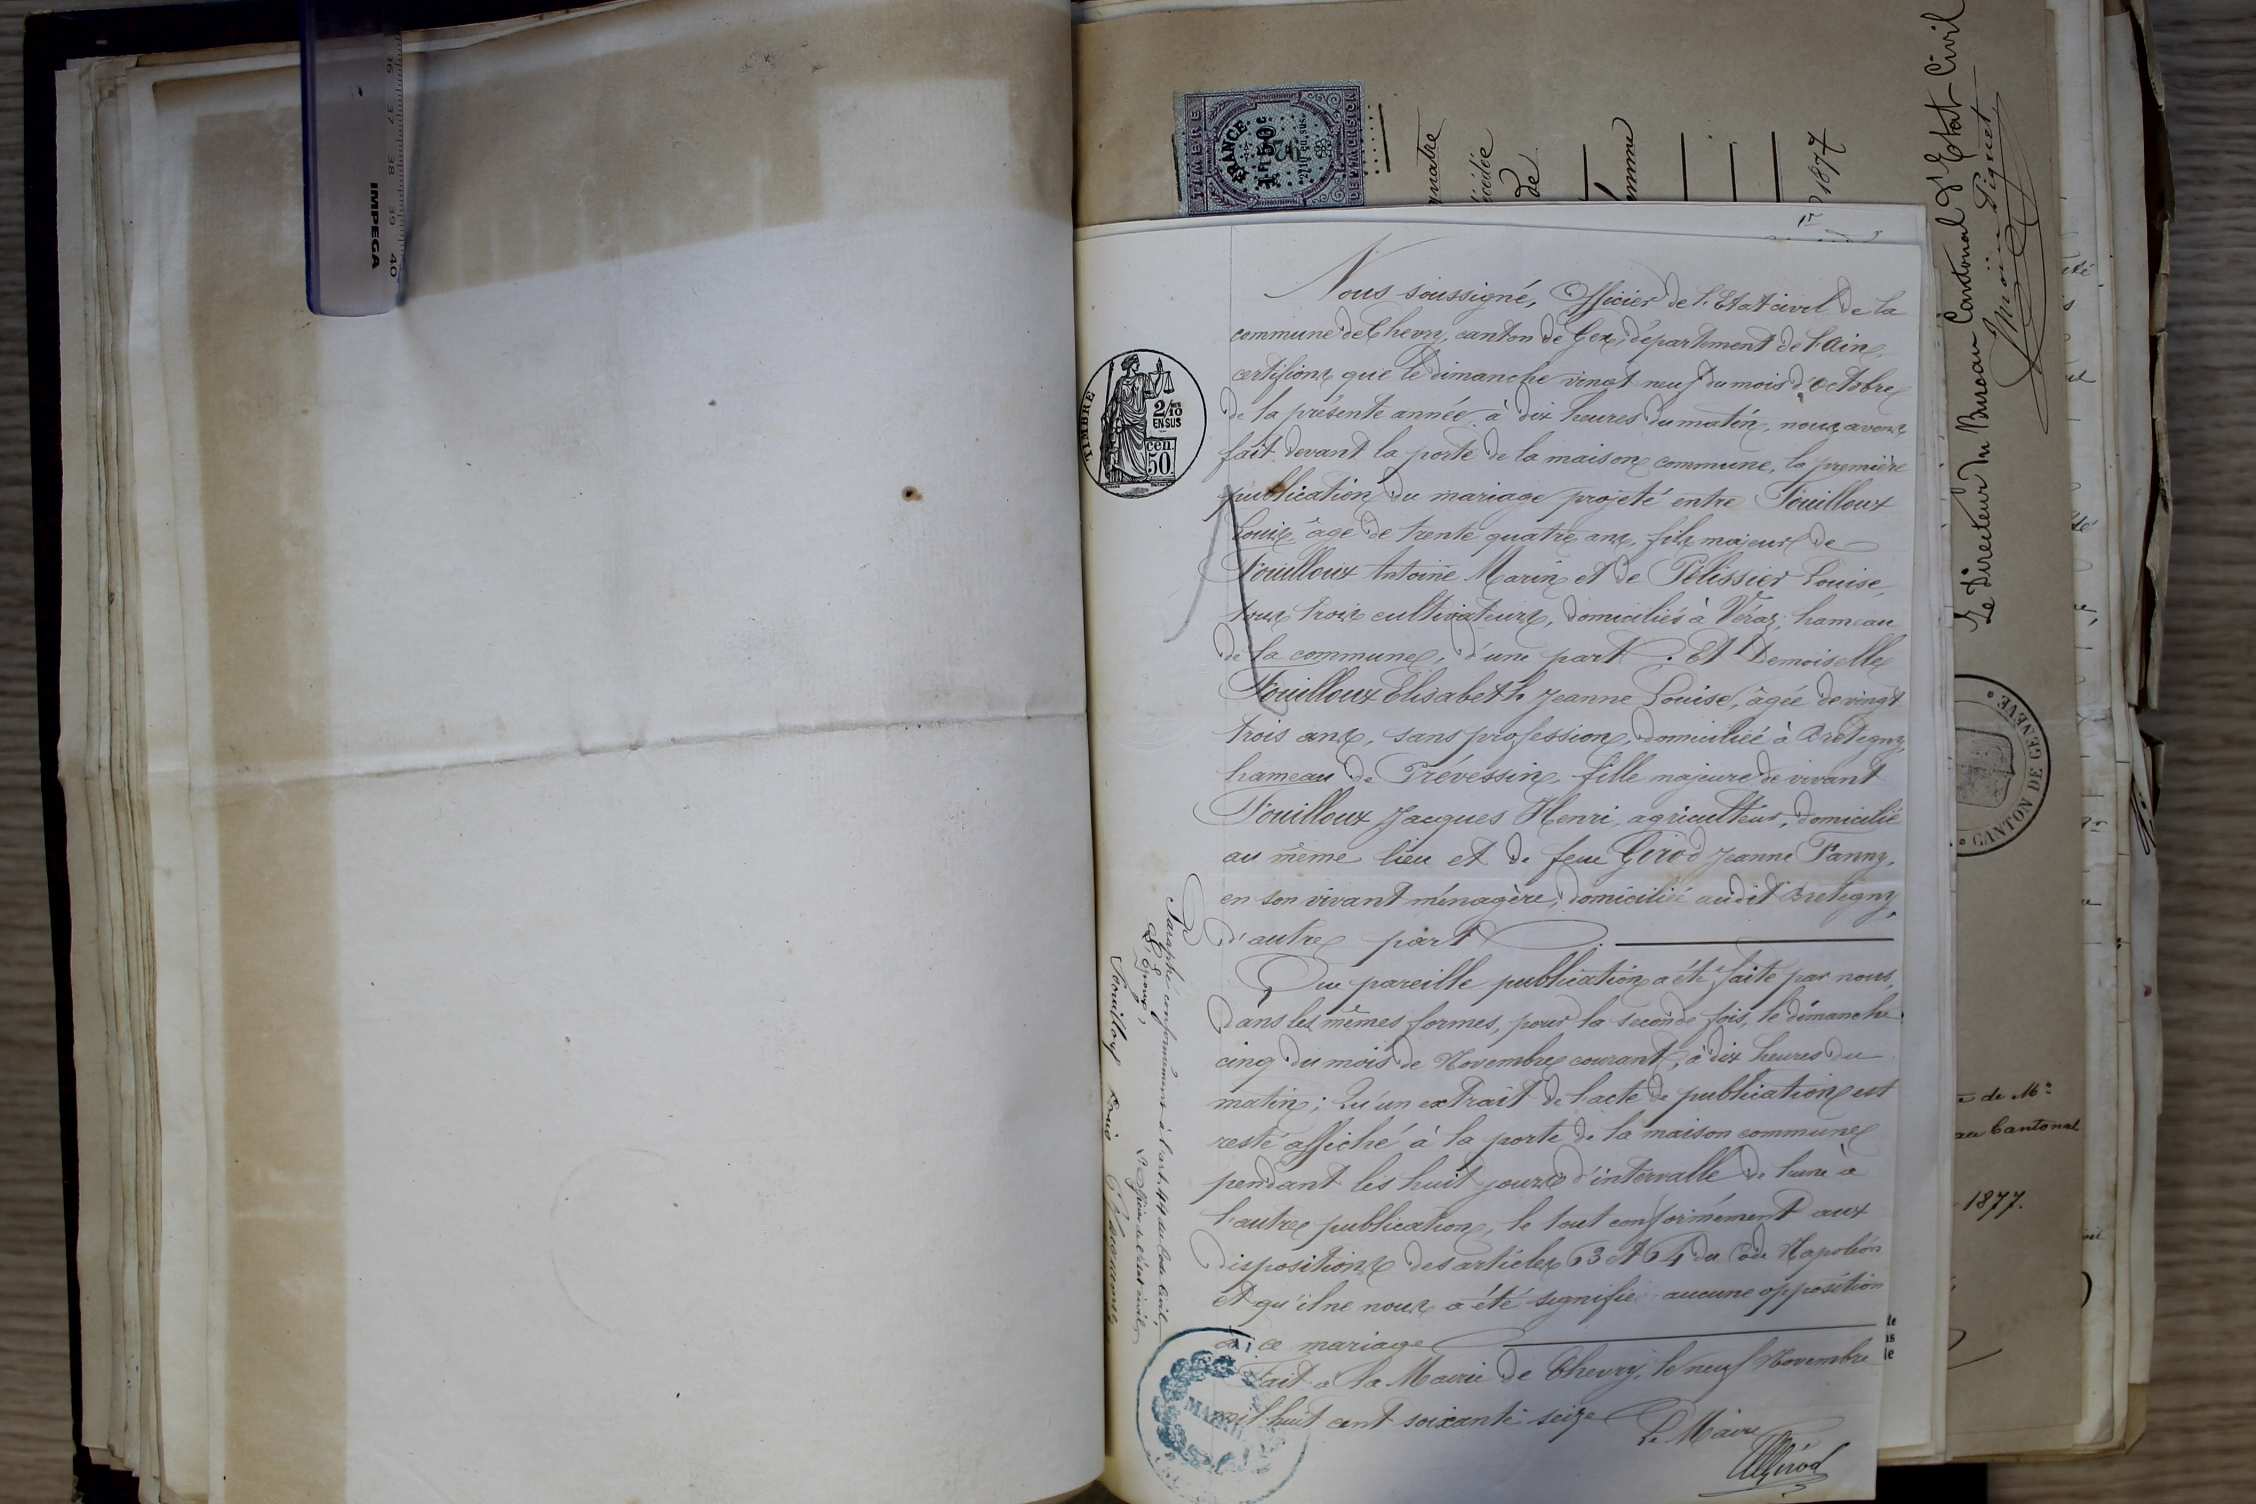 36 37 38 39 40
IMPEGA
TIMBRE
FRANCE
DIMENSION
quatre
de
1877
Le Directeur du Bureau Cantonal d'Etat Civil
CANTON DE GENEVE
de Me
au Cantonal
1877.
TIMBRE
2/10
EN SUS
cen.
50
Nous soussigné, Officier de l'Etat civil de la
commune de Chevry, canton de Gex, département de l'Ain,
certifions que le dimanche vingt neuf du mois d'Octobre
de la présente année à dix heures du matin, nous avons
fait devant la porte de la maison commune, la première
publication du mariage projeté entre Fouilloux
Louis âgé de trente quatre ans, fils majeur de
Fouilloux Antoine Marin et de Pélissier Louise,
tous trois cultivateurs, domiciliés à Véraz, hameau
de la commune, d'une part. Et Demoiselle
Fouilloux Elisabeth Jeanne Louise, âgée de vingt
trois ans, sans profession, domiciliée à Bretigny,
hameau de Prévessin, fille majeure de vivant
Fouilloux Jacques Henri, agriculteur, domicilié
au même lieu et de feue Girod Jeanne Fanny,
en son vivant ménagère, domiciliée audit Bretigny,
d'autre part
Que pareille publication a été faite par nous,
dans les mêmes formes, pour la seconde fois, le dimanche
cinq du mois de Novembre courant, à dix heures du
matin; Qu'un extrait de l'acte de publication est
resté affiché à la porte de la maison commune
pendant les huit jours d'intervalle de l'une à
l'autre publication, le tout conformément aux
dispositions des articles 63 et 64 du Code Napoléon
et qu'il ne nous a été signifié aucune opposition
à ce mariage
Fait à la Mairie de Chevry, le neuf Novembre
mil huit cent soixante seize
Le Maire
Girod
Paraphé conformément à l'art. 44 du Code Civil,
L'Epoux,
L'officier de l'état civil,
Fouilloux Louis
MAIRIE